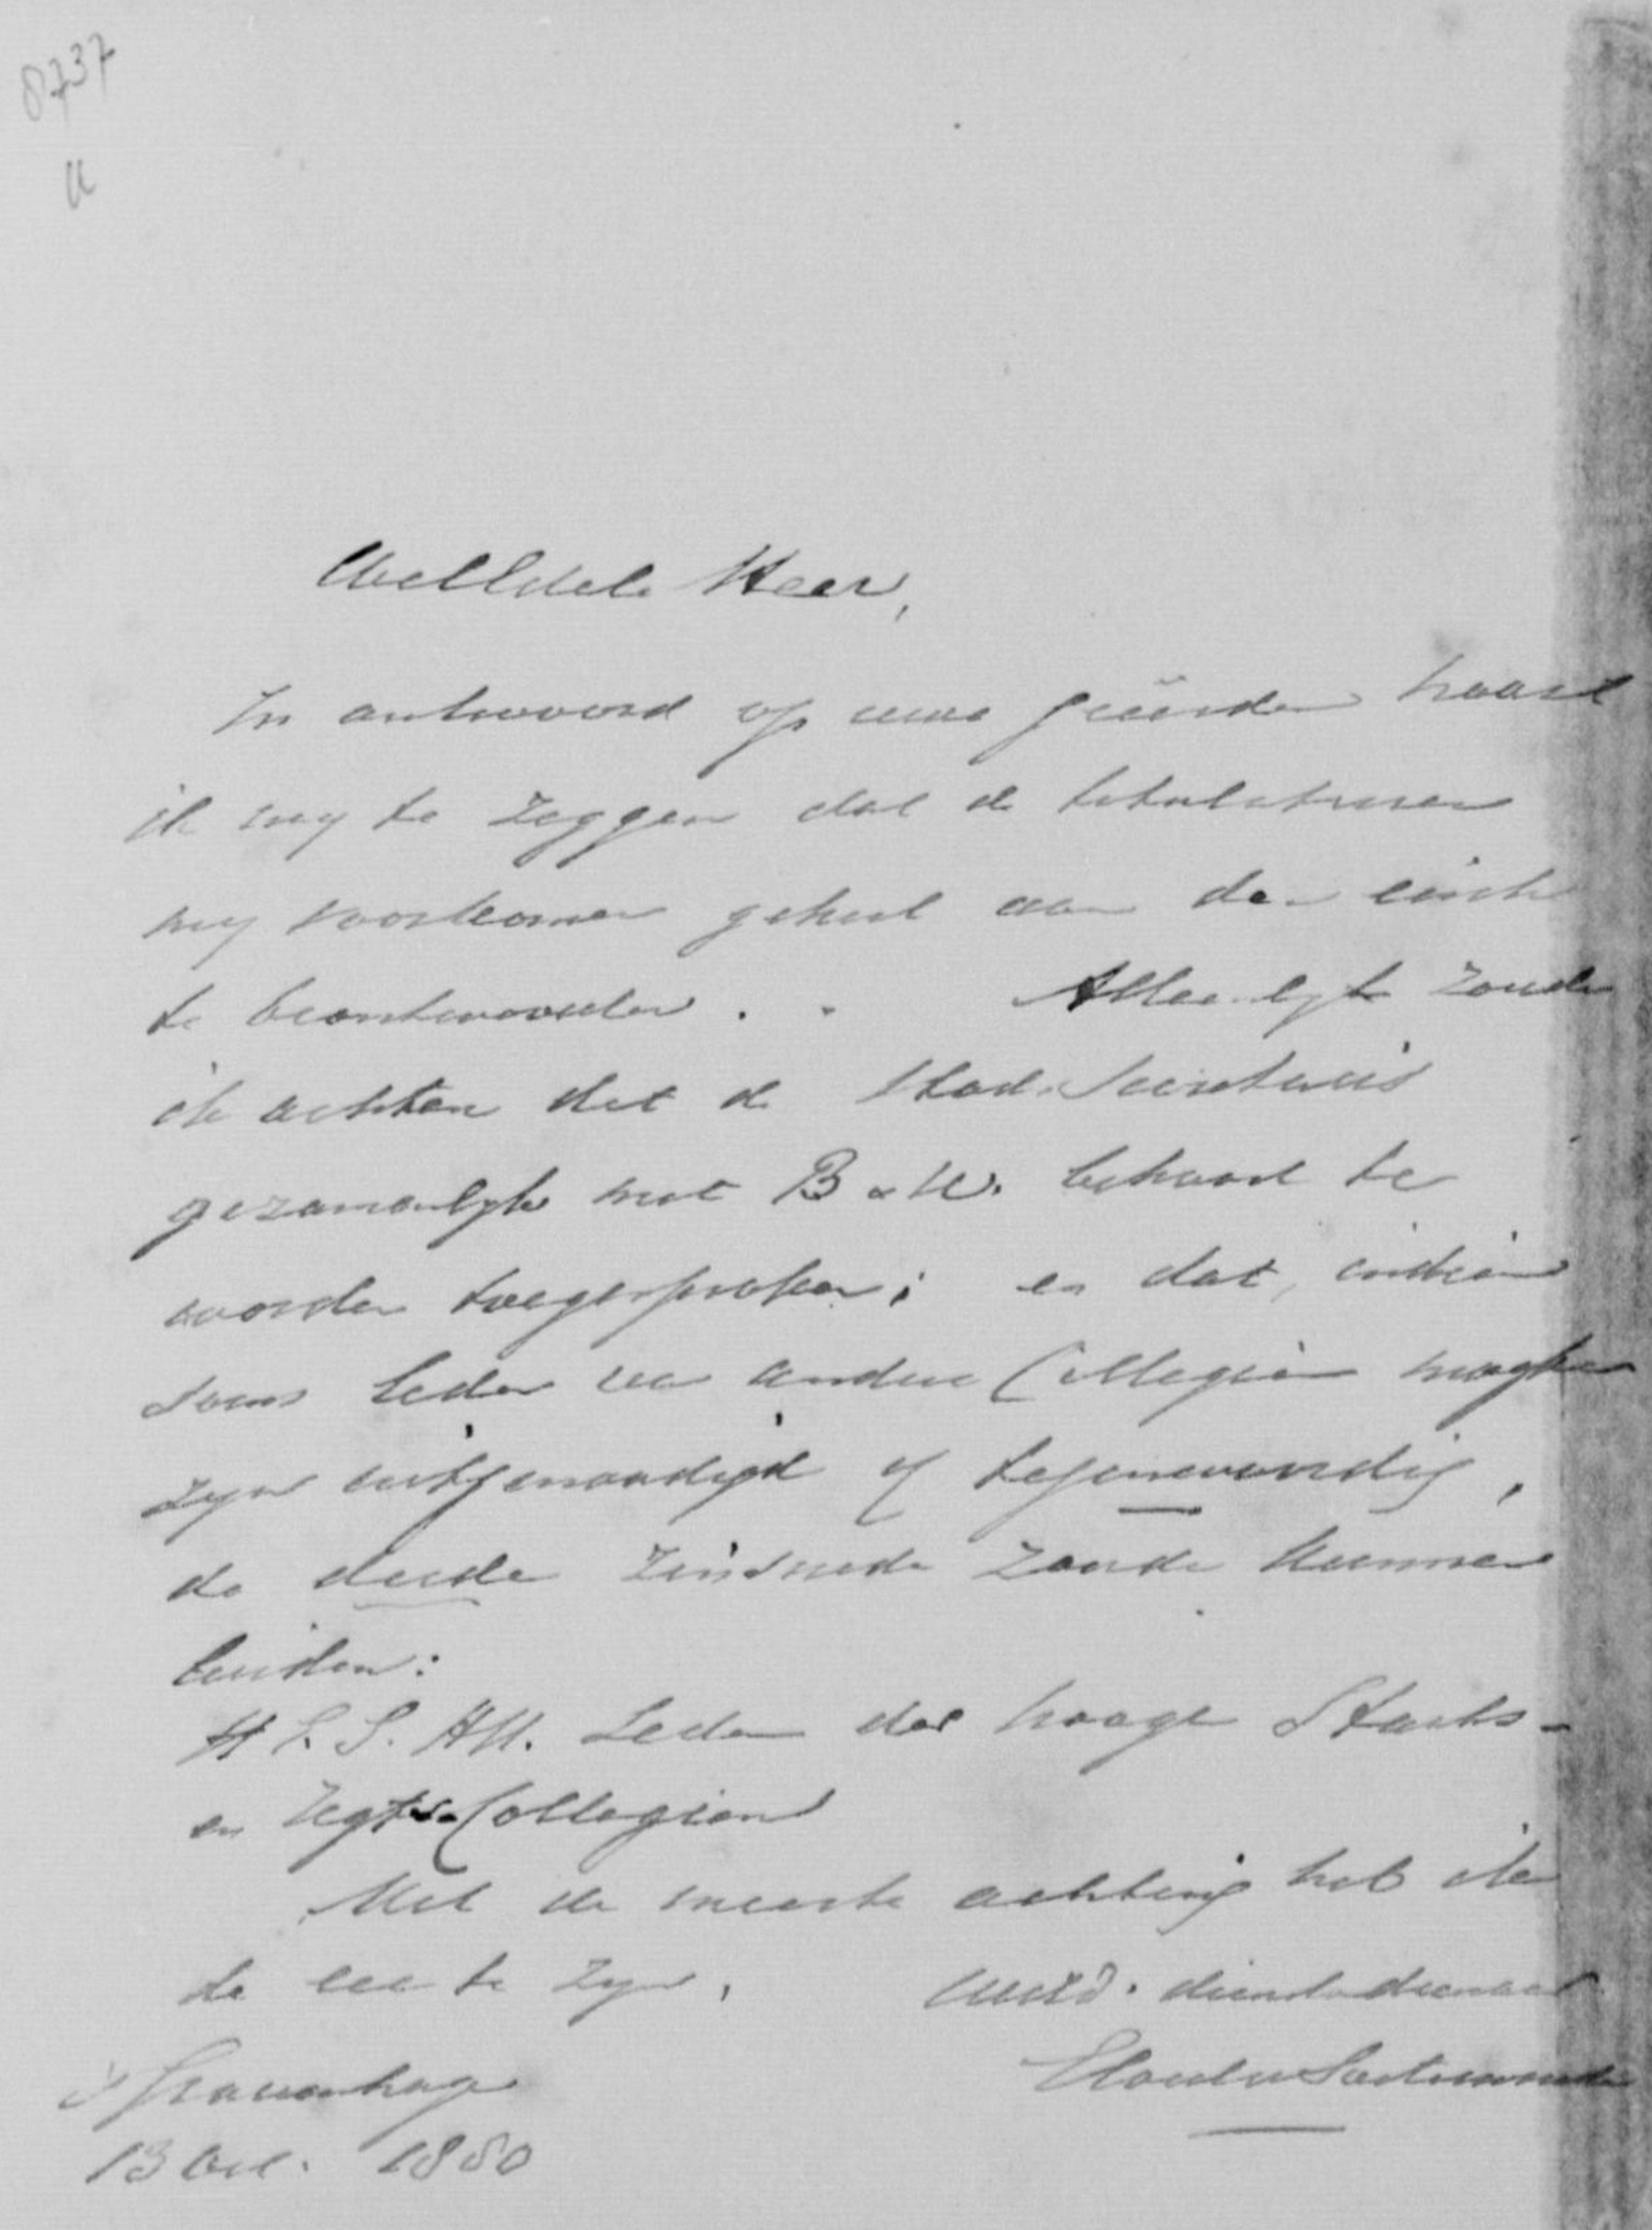 8737
WelEdele Heer,
In antwoord op uwe geëerden haast
ik my te zeggen dat de titulaturen
my voorkomen geheel aan den eisch
te beantwoorden. Alleenlyk zoude
ik achten dat de Stads-Secretaris
gezamenlyk met B & W. behoort te
worden toegesproken; en dat, indien
soms Leden van andere Collegien mogten
zyn uitgenoodigd of tegenwoordig,
de derde zinsnede zoude kunnen
luiden:
HH. Leden der hooge Staats-
en Regts-Collegien
Met de meeste achting heb ik
de eer te zyn,
UwEd. dienstv. dienaar
's Gravenhage
13 Oct. 1880